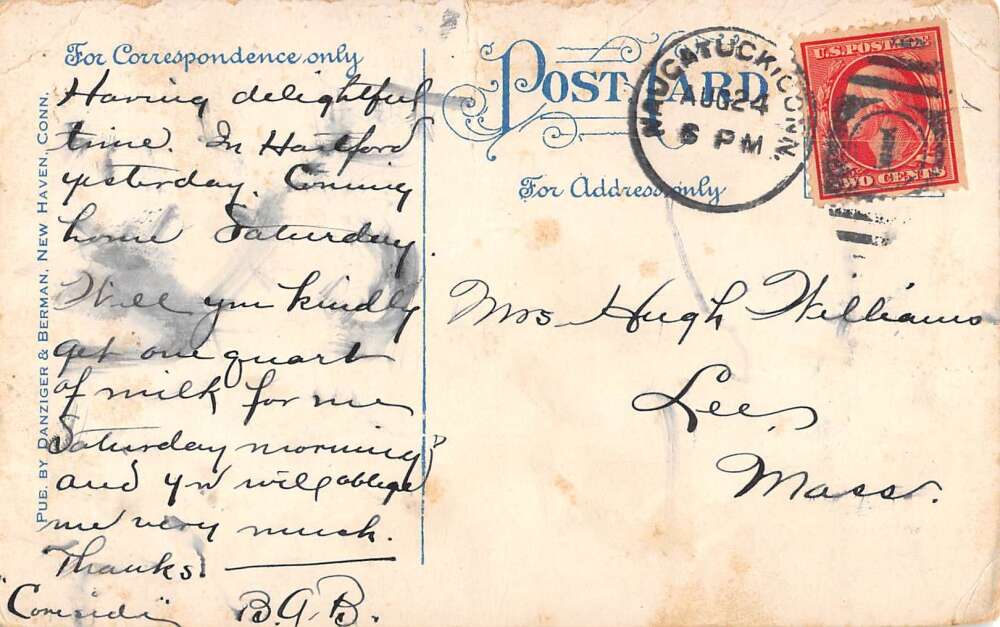 For Correspondence only
Having delightful
time. In Hartford
yesterday. Coming
home Saturday
Will you kindly
get one quart
of milk for me
Saturday morning
and yu will oblige
me very much.
Thanks
B.G.B.
PUB. BY DANZIGER & BERMAN, NEW HAVEN, CONN.
POST CARD
For Address only
NAUGATUCK, CONN.
AUG 24
6 PM
U.S. POSTAGE
TWO CENTS
1
Mrs Hugh Williams
Lee,
Mass.